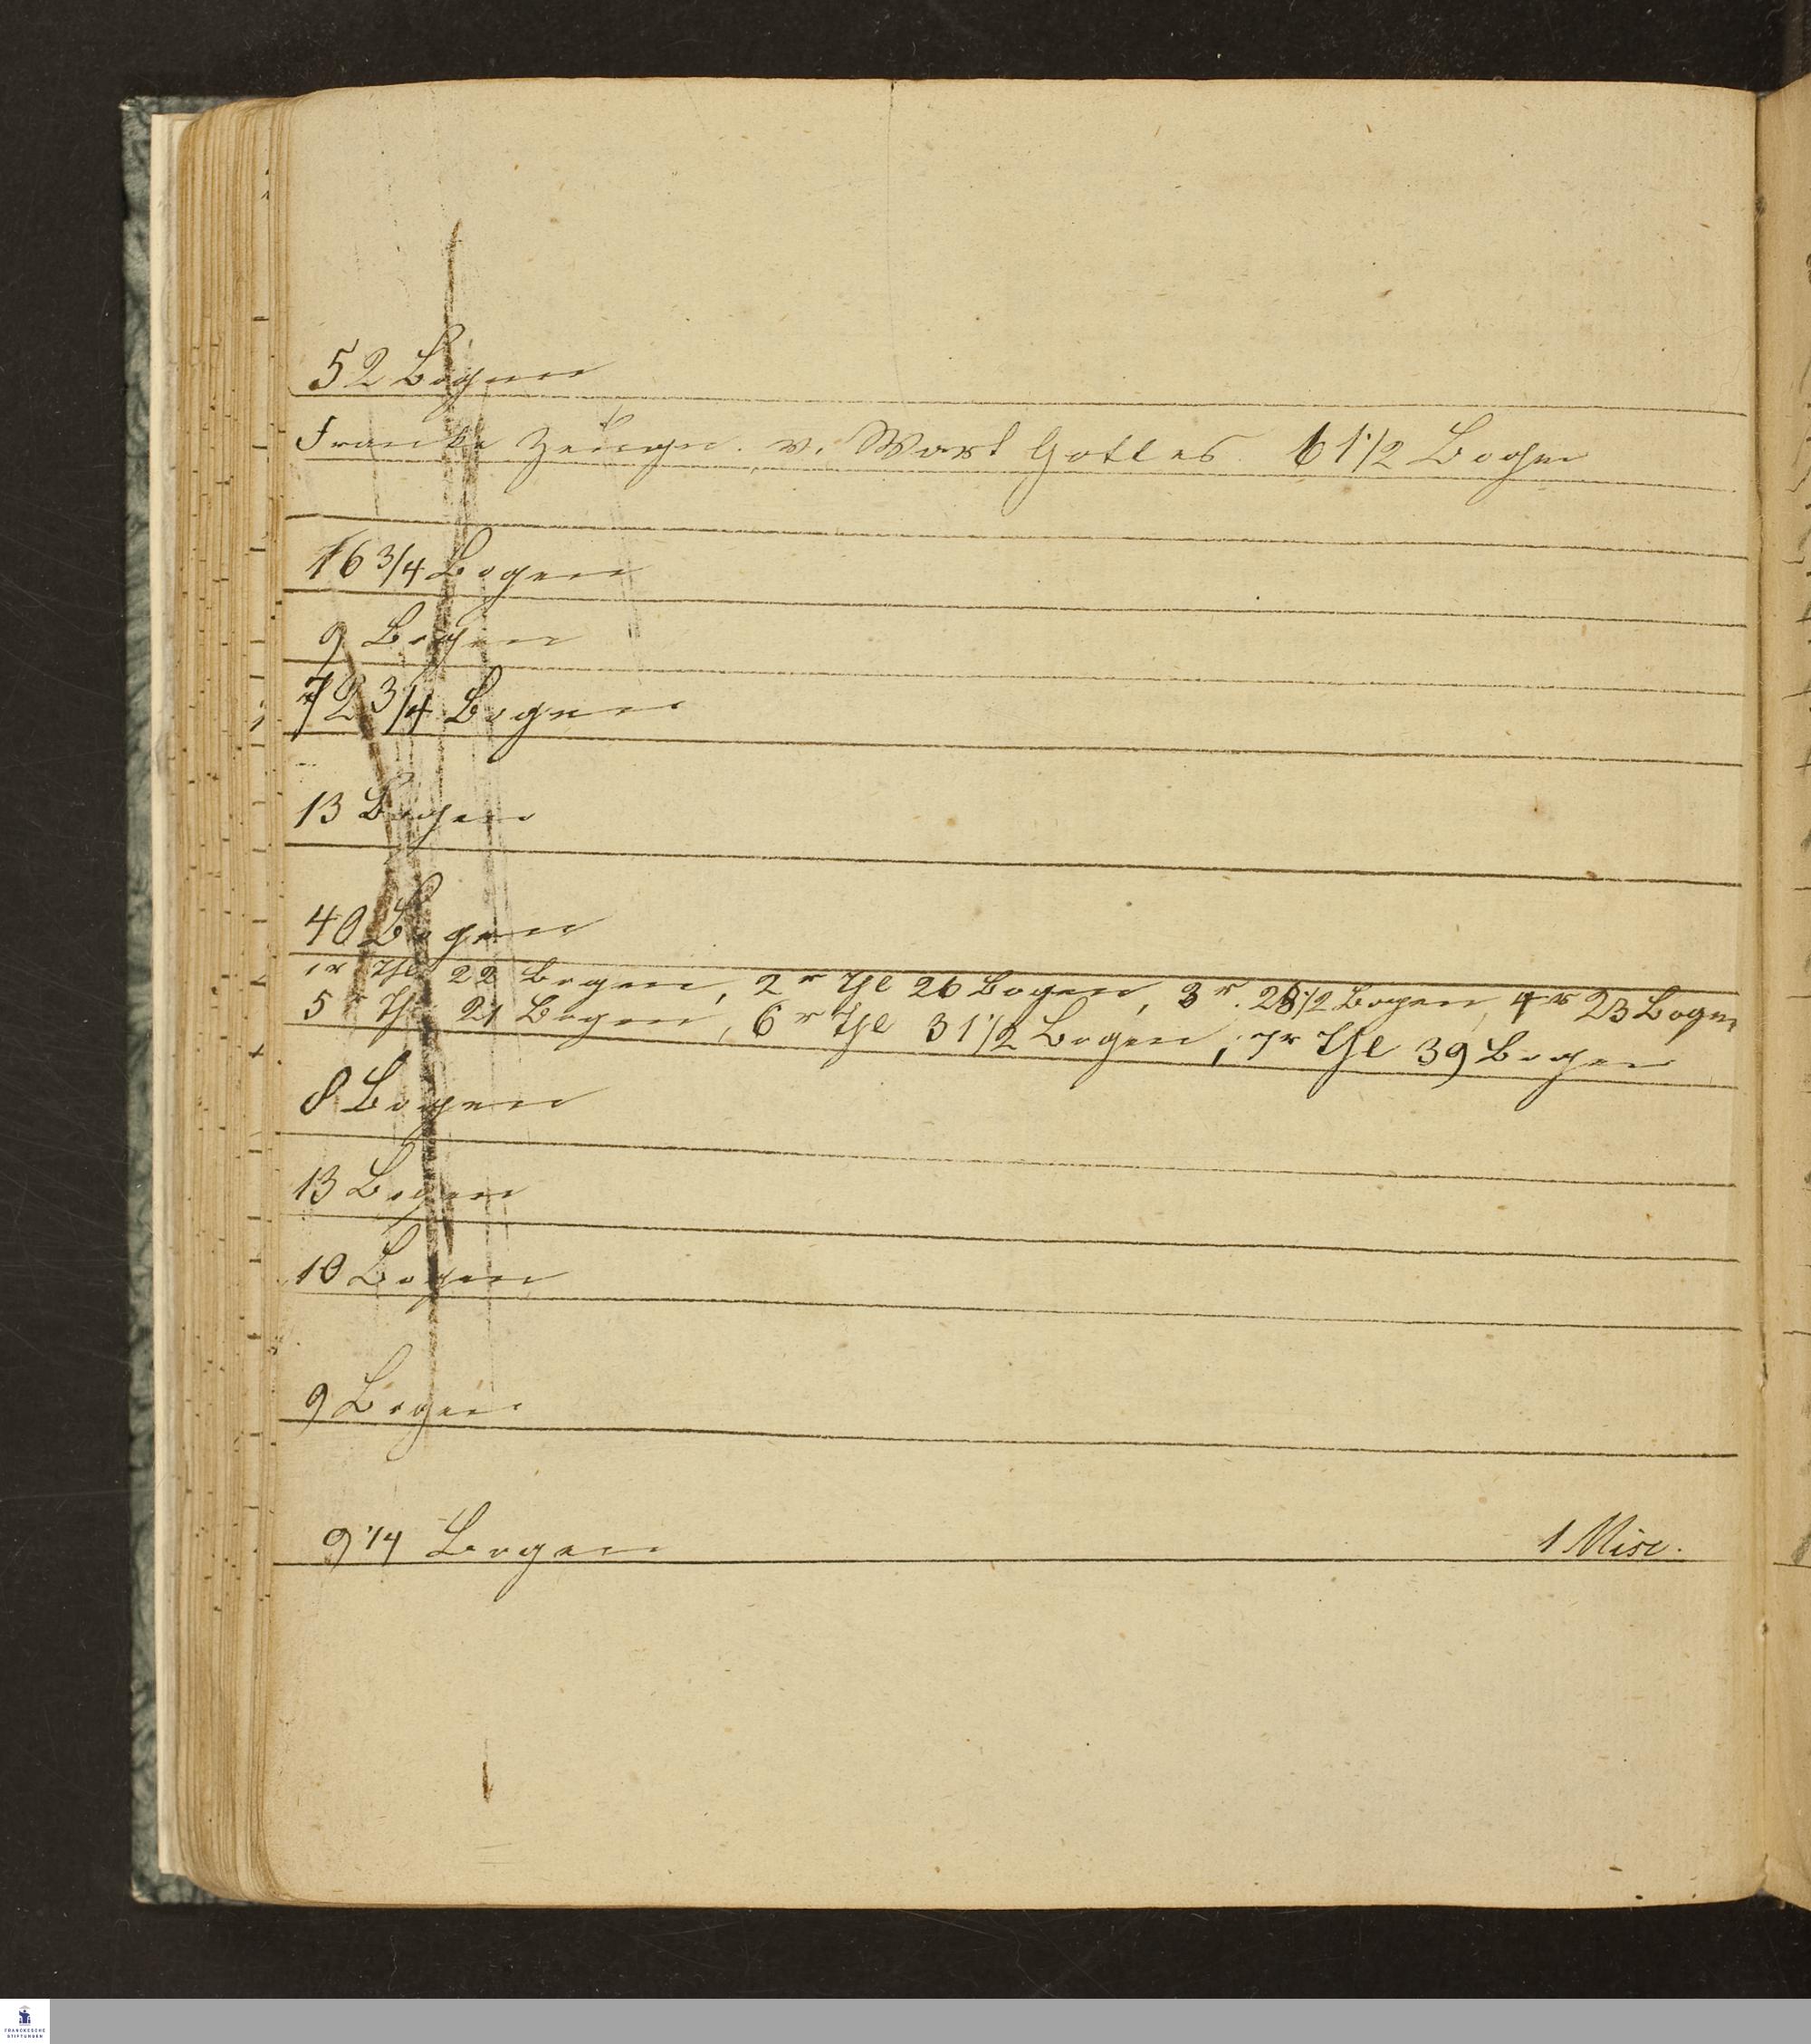 52 Bogen
Francke Zeugn. v. Wort Gottes 61/2 Bogen
16 3/4 Bogen
9 Bogen
72 3/4 Bogen
13 Bogen
40 Bogen
1r Thl 22 Bogen, 2r Thl 26 Bogen, 3r. 281/2 Bogen, 4r 23 Bogen
5r Thl 21 Bogen, 6r Thl 31 1/2 Bogen, 7r Thl 39 Bogen
8 Bogen
13 Bogen
10 Bogen
9 Bogen
9 1/4 Bogen 1 Misc.
FRANCKESCHE
STIFTUNGEN